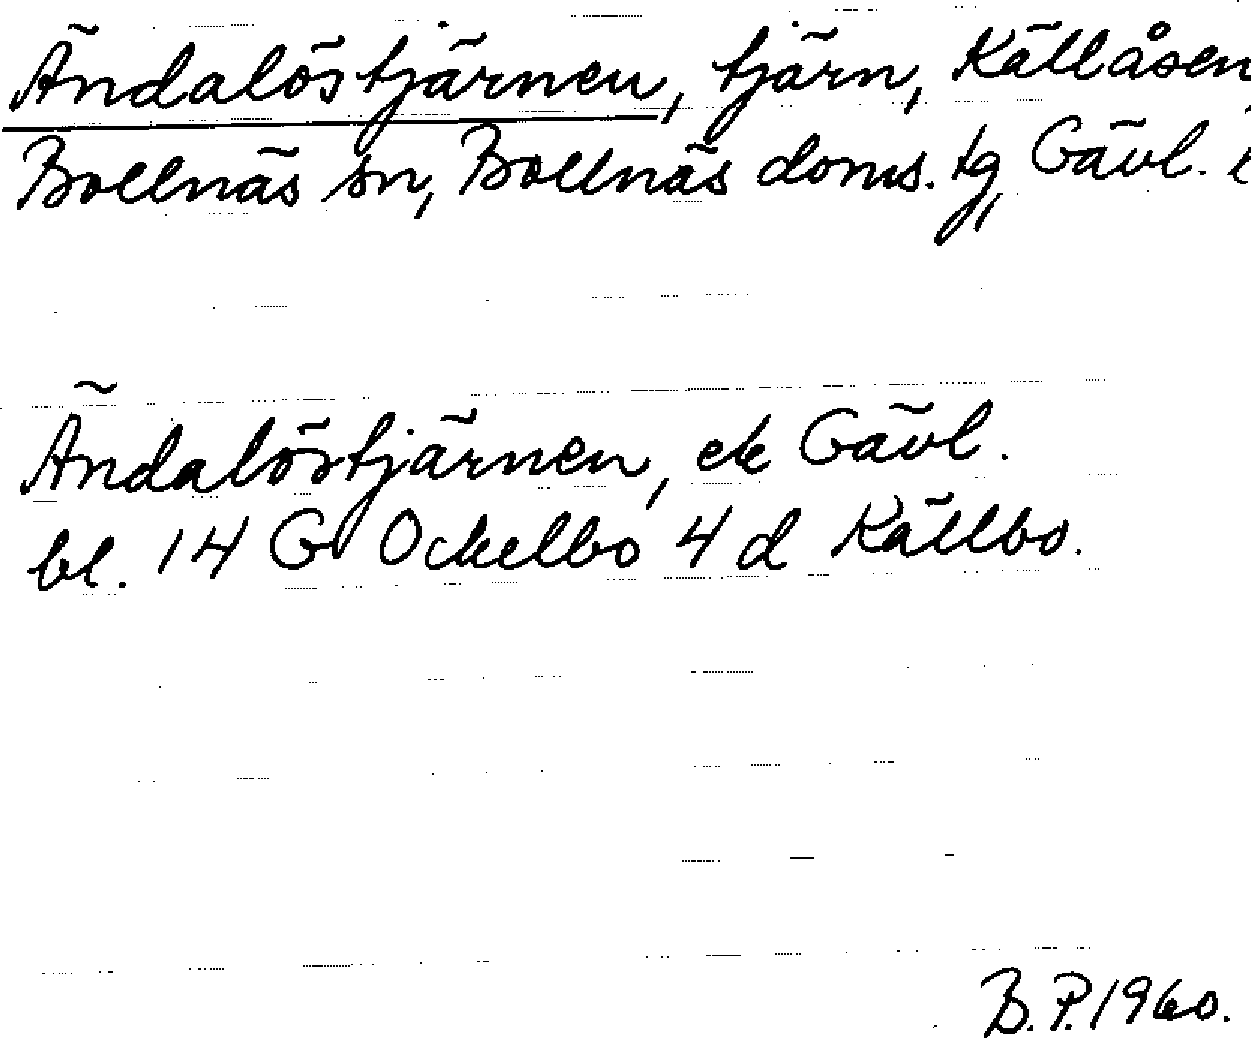 Ändalöstjärnen, tjärn, Källåsen
Bollnäs sn, Bollnäs doms. tg, Gävl. l
Ändalöstjärnen, ek Gävl.
bl. 14 G Ockelbo 4 d Källbo.
B.P. 1960.